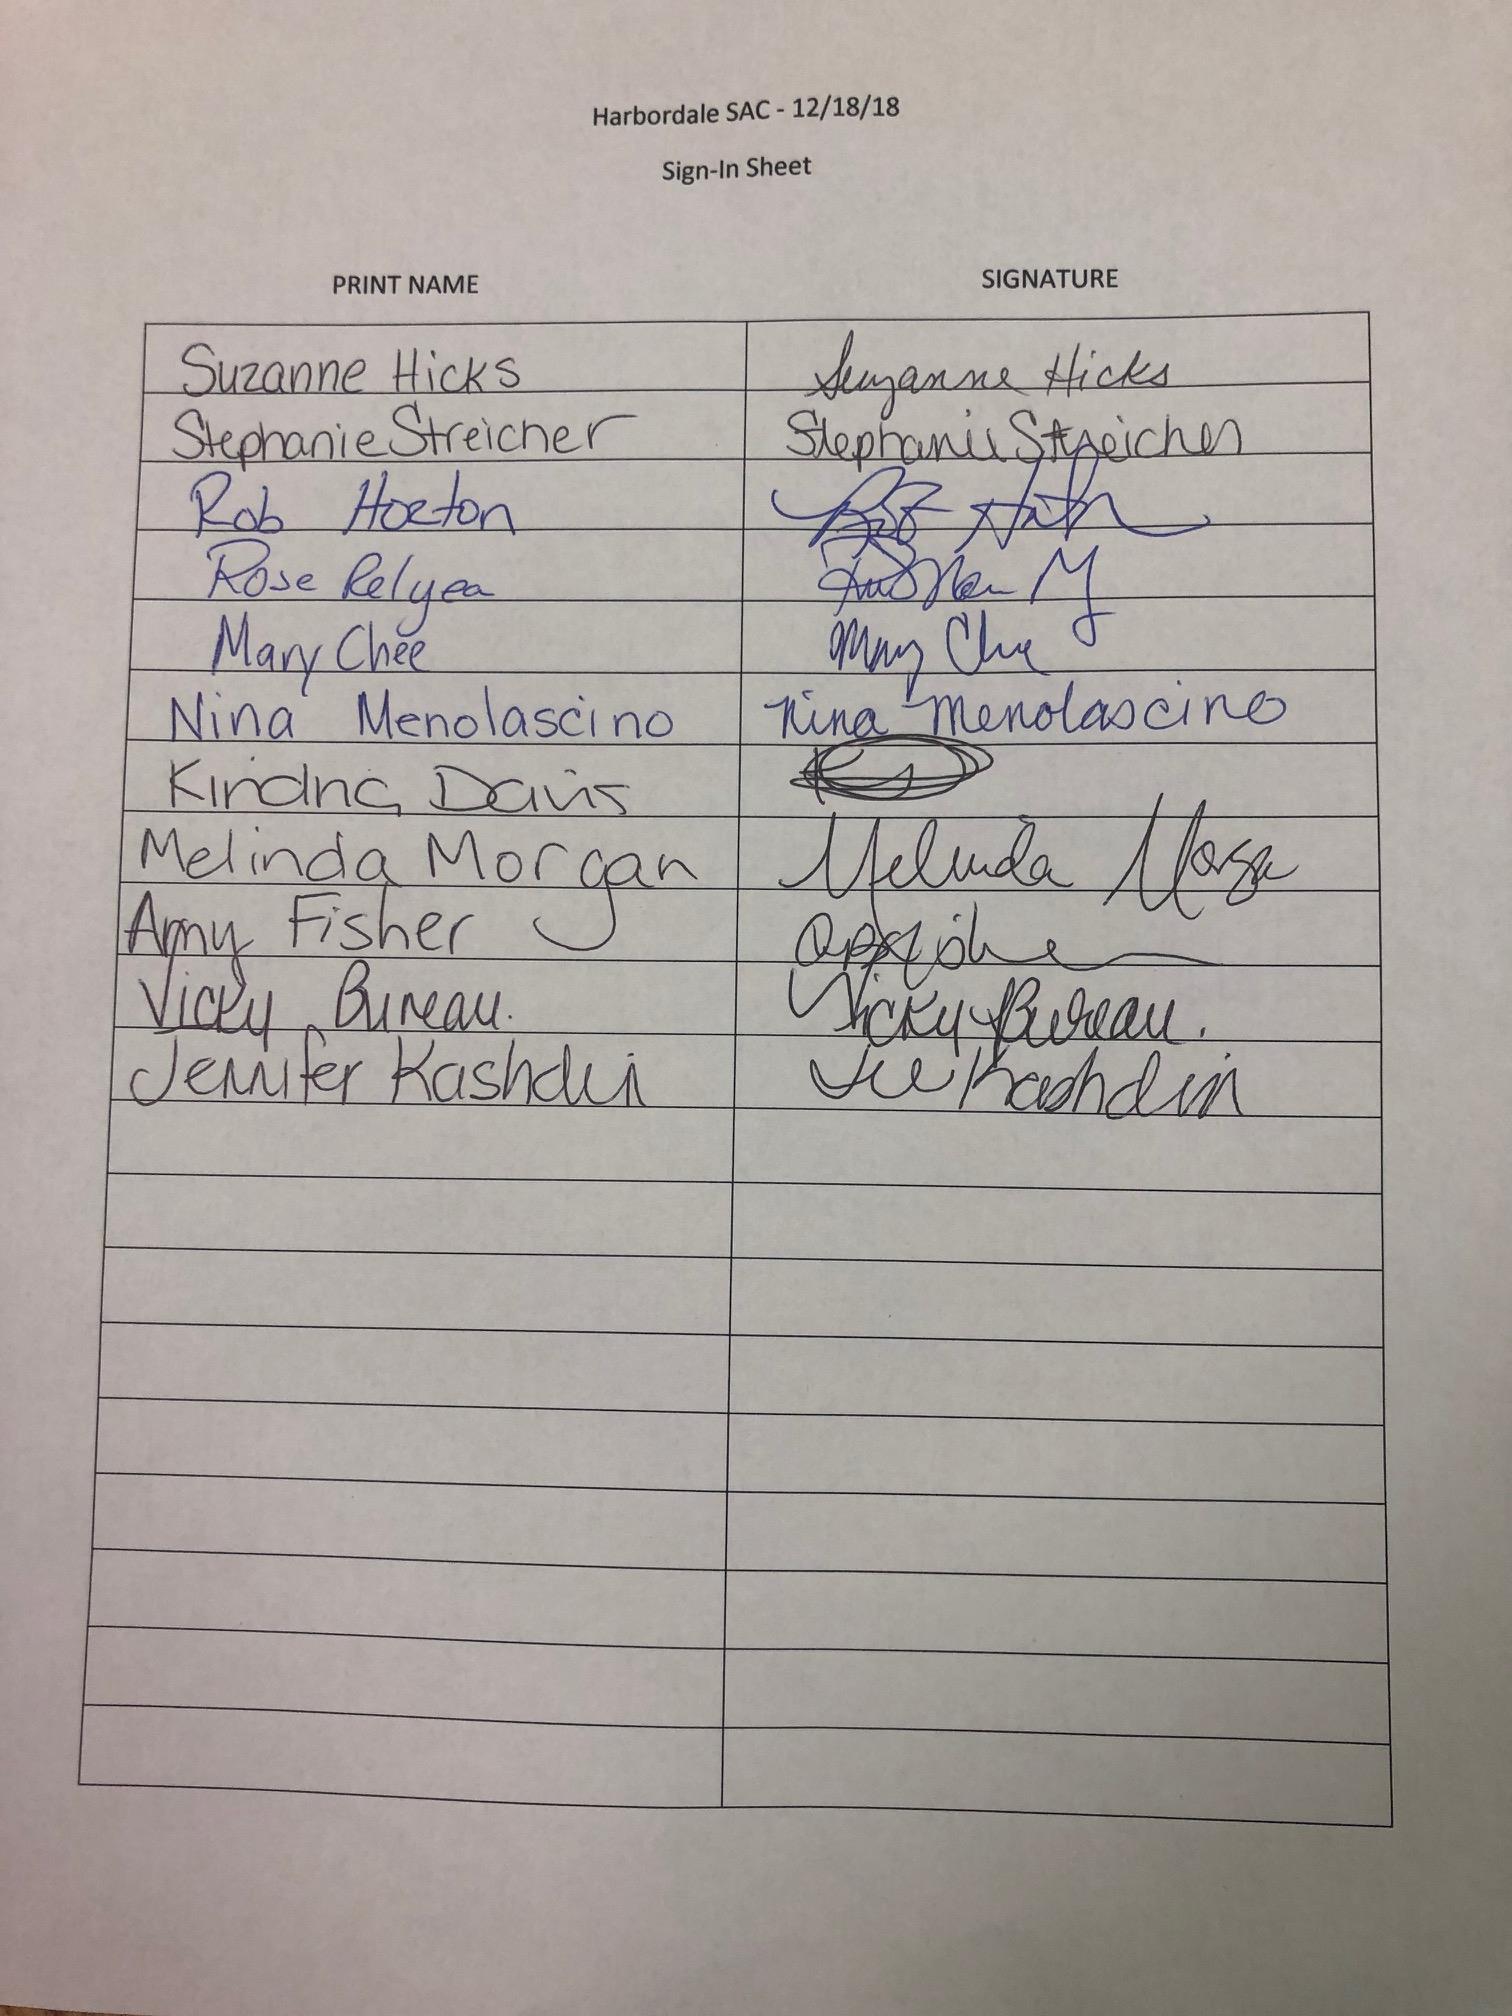 Harbordale SAC - 12/18/18
Sign-In Sheet
PRINT NAME SIGNATURE
Suzanne Hicks Suzanne Hicks
Stephanie Streicher Stephanie Streicher
Rob Horton
Rose Relyea
Mary Chee Mary Chee
Nina Menolascino Nina Menolascino
Davis
Melinda Morgan Melinda Morgan
Amy Fisher
Vicky Bureau. Vicky Bureau.
Jennifer Kashdin Kashdin